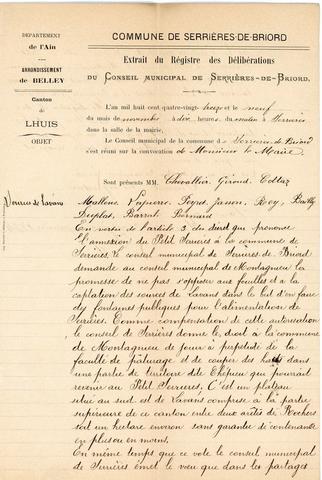 DÉPARTEMENT
de l'Ain
ARRONDISSEMENT
de BELLEY
Canton
de
LHUIS
OBJET
COMMUNE DE SERRIÈRES-DE-BRIORD
Extrait du Registre des Délibérations
DU CONSEIL MUNICIPAL DE SERRIÈRES-DE-BRIORD.
L'an mil huit cent quatre-vingt-treize et le neuf
du mois de novembre à dix heures du matin à Serrières
dans la salle de la mairie,
Le Conseil municipal de la commune de Serrières de Briord
s'est réuni sur la convocation de Monsieur le Maire
Sont présents MM. Chevallier, Giroud,
Sources de Lavans
Jasson, Roy, Bailly
Barral Bernard
En vertu de l'article 3 du qui prononce
l'annexion du Petit Serrières à la commune de
Serrières, le conseil municipal de Serières de Briord
demande au conseil municipal de Montagneu la
promesse de ne pas s'opposer aux fouilles et à la
captation des sources de Lavans dans le but d'en faire
des fontaines publiques pour l'alimentation de
Serières. Comme compensation de cette autorisation
le conseil de Serières donne le droit à la commune
de Montagneu de jouir à perpétuité de la
faculté de pâturage et de couper des dans
une partie de territoire de qui pourrait
revenir au Petit Serrières, C'est un plateau
situé au sud est de Lavans comprise à la partie
supérieure de ce canton entre deux arêtes de Rochers
soit un hectare environ sans garantie de contenance
en plus ou en moins.
En même temps que ce vote le conseil municipal
de Serrières émet le vœu que dans les partages